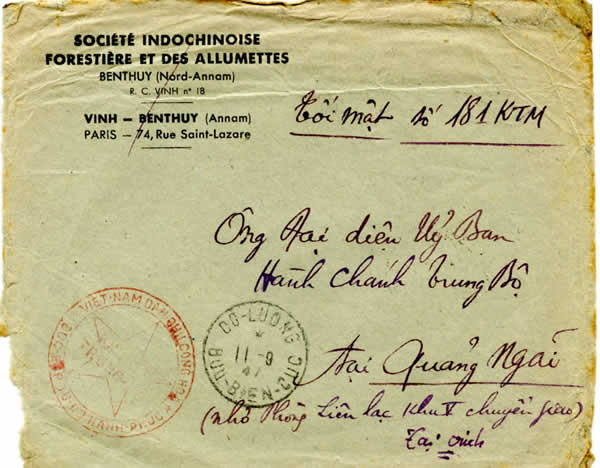 SOCIÉTÉ INDOCHINOISE
FORESTIÈRE ET DES ALLUMETTES
BENTHUY (Nord-Annam)
R. C. VINH nº 18
VINH – BENTHUY (Annam)
PARIS – 74, Rue Saint-Lazare
Tối mật số 181 KTM
Ông Đại diện Uỷ Ban
Hành chánh Trung Bộ
Tại Quảng Ngãi
(nhờ Phòng Liên lạc Khu V chuyển giao)
Tại Vinh
VIỆT-NAM DÂN CHỦ CỘNG HOÀ
HẠNH-PHÚC
DO-LUONG
11-9
47
BUU-DIEN-CUC